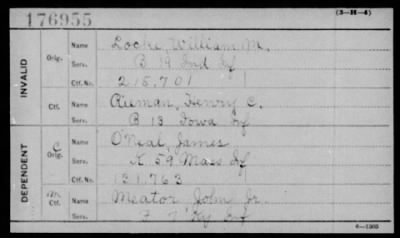 176955
(3-H-4)
INVALID
Orig.
Name Locke, William M.
Serv. B 19 Ind Inf
Ctf. No. 215,701
Ctf.
Name Rieman, Henry C.
Serv. B 13 Iowa Inf
DEPENDENT
C Orig.
Name O'Neal, James
Serv. K 59 Mass Inf
Ctf. No. 131,763
Ctf.
Name Meator, John Jr.
Serv. F 7 Ky Inf